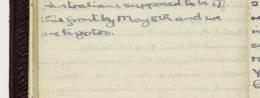 Australians supposed to be off
this front by May 8th and we
are to